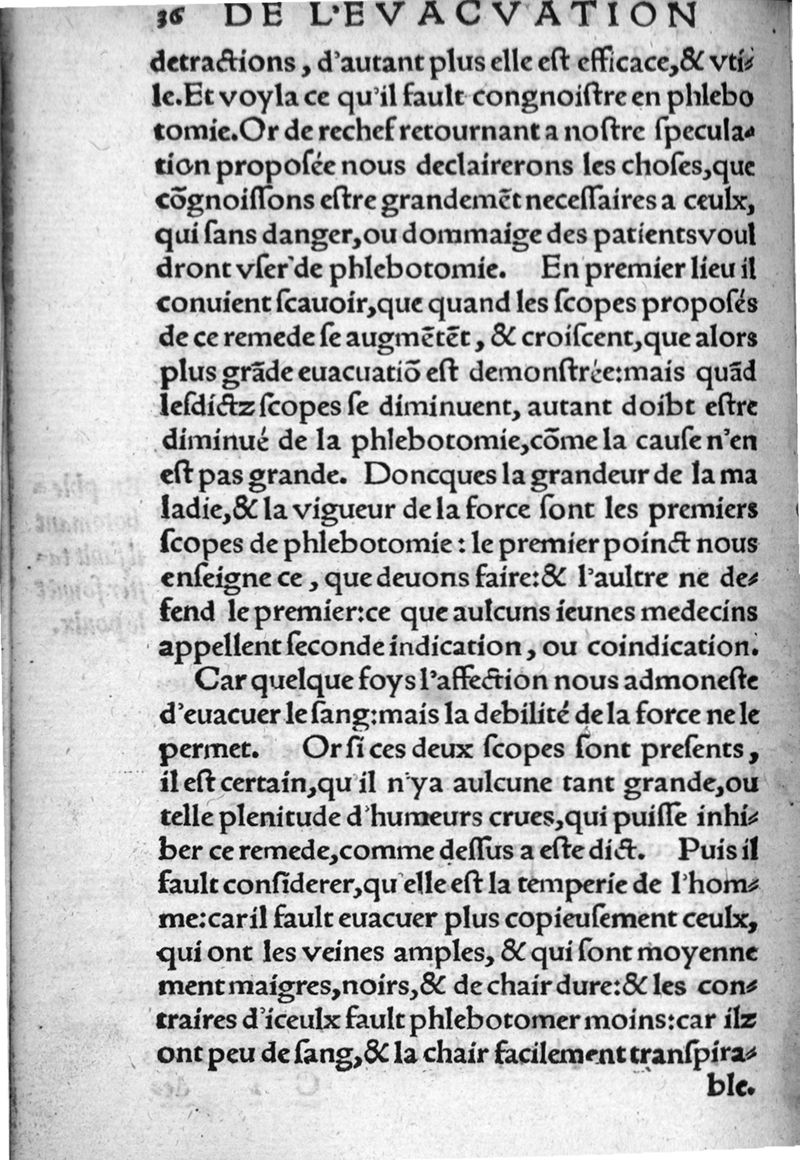 36 DE L'EVACVATION
detractions, d'autant plus elle eſt efficace,& vti⸗
le.Et voyla ce qu'il fault congnoiſtre en phlebo
tomie.Or de rechef retournant a noſtre ſpecula⸗
tion propoſée nous declairerons les choſes,que
cõgnoiſſons eſtre grandemẽt neceſſaires a ceulx,
qui ſans danger,ou dommaige des patients voul
dront vſer de phlebotomie. En premier lieu il
conuient ſcauoir,que quand les ſcopes propoſés
de ce remede ſe augmẽtẽt, & croiſcent,que alors
plus grãde euacuatiõ eſt demonſtrée:mais quãd
leſdictz ſcopes ſe diminuent, autant doibt eſtre
diminué de la phlebotomie,cõme la cauſe n'en
eſt pas grande. Doncques la grandeur de la ma
ladie,& la vigueur de la force ſont les premiers
ſcopes de phlebotomie : le premier poinct nous
enſeigne ce, que deuons faire:& l'aultre ne de⸗
fend le premier:ce que aulcuns ieunes medecins
appellent ſeconde indication, ou coindication.
Car quelque foys l'affection nous admoneſte
d'euacuer le ſang:mais la debilité de la force ne le
permet. Or ſi ces deux ſcopes ſont preſents,
il eſt certain,qu'il n'ya aulcune tant grande,ou
telle plenitude d'humeurs crues,qui puiſſe inhi⸗
ber ce remede,comme deſſus a eſte dict. Puis il
fault conſiderer,qu'elle eſt la temperie de l'hom⸗
me:car il fault euacuer plus copieuſement ceulx,
qui ont les veines amples, & qui ſont moyenne
ment maigres,noirs,& de chair dure:& les con⸗
traires d'iceulx fault phlebotomer moins:car ilz
ont peu de ſang,& la chair facilement tranſpira⸗
ble.